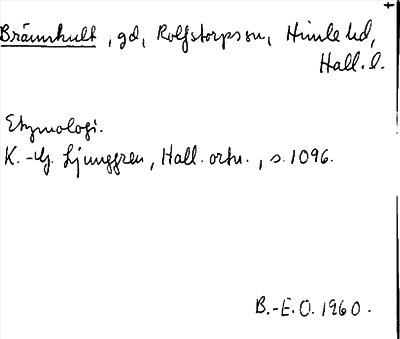 Brännhult, gd, Rolfstorps sn, Himle hd,
Hall. l.
Etymologi.
K.-G. Ljunggren, Hall. ortn., s. 1096.
B.-E.O. 1960.